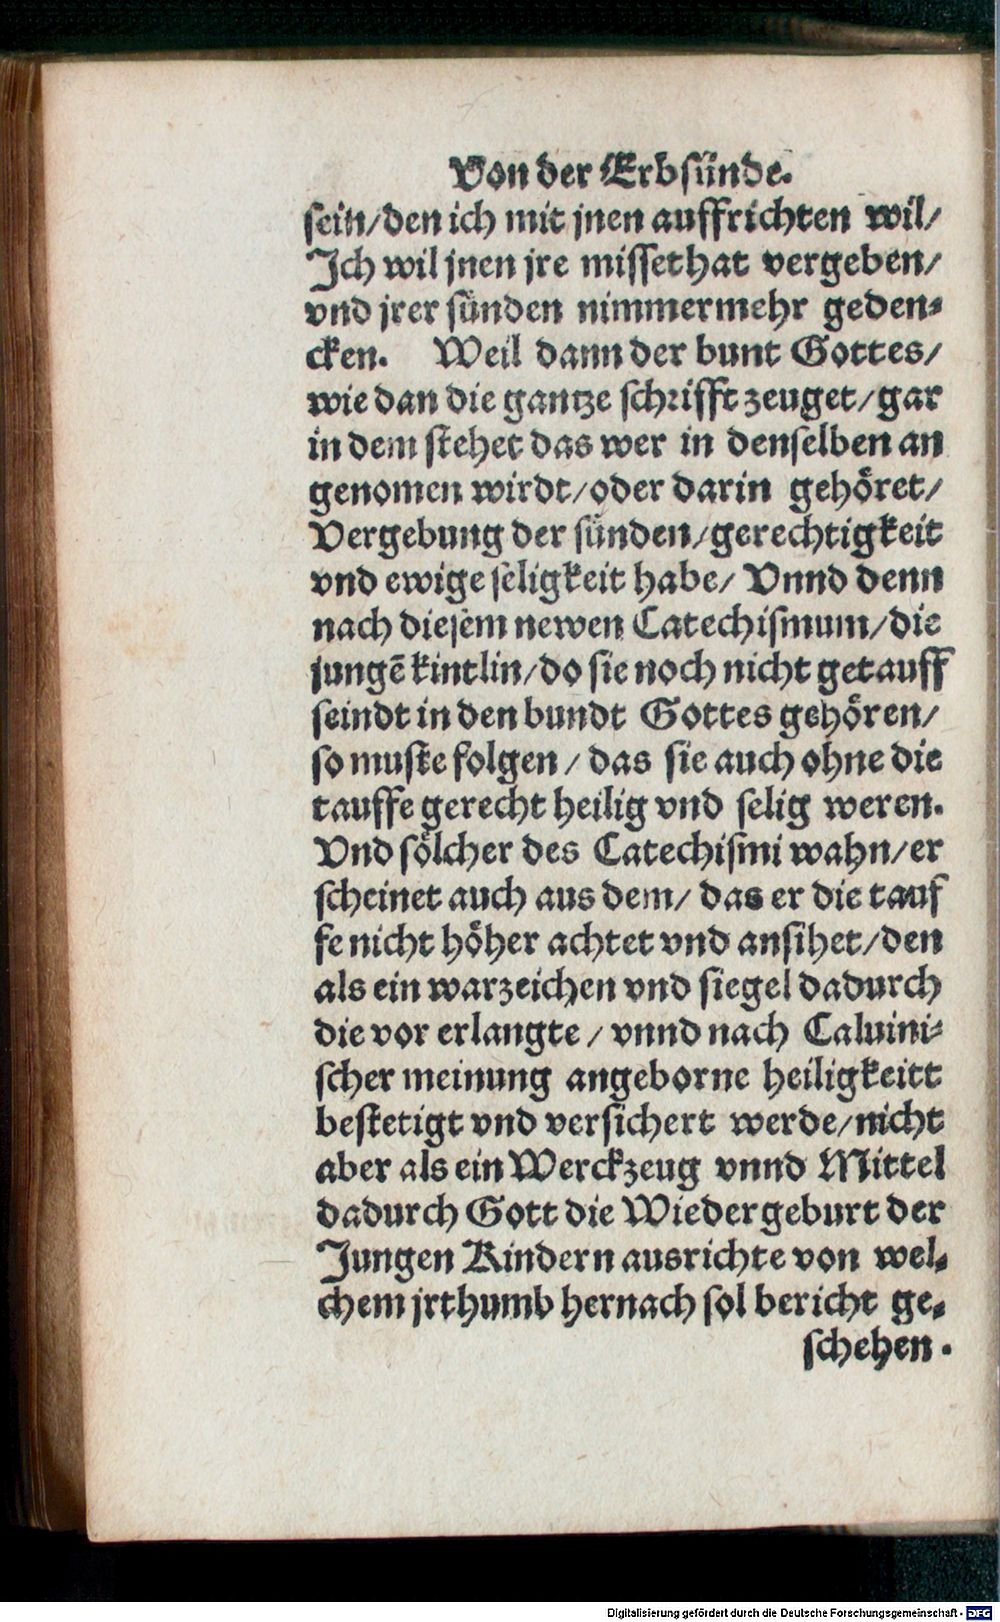 Von der Erbsünde.
sein/den ich mit jnen auffrichten wil/
Ich wil jnen jre missethat vergeben/
vnd jrer sünden nimmermehr geden-
cken. Weil dann der bunt Gottes/
wie dan die gantze schrifft zeuget/gar
in dem stehet das wer in denselben an
genomen wirdt/oder darin gehöret/
Vergebung der sünden/gerechtigkeit
vnd ewige seligkeit habe/ Vnnd denn
nach diesem newen Catechismum/die
jungē kintlin/do sie noch nicht getauff
seindt in den bundt Gottes gehören/
so muste folgen/ das sie auch ohne die
tauffe gerecht heilig vnd selig weren.
Vnd sölcher des Catechismi wahn/er
scheinet auch aus dem/ das er die tauf
fe nicht höher achtet vnd ansihet/den
als ein warzeichen vnd siegel dadurch
die vor erlangte/ vnnd nach Caluini-
scher meinung angeborne heiligkeitt
bestetigt vnd versichert werde/nicht
aber als ein Werckzeug vnnd Mittel
dadurch Gott die Wiedergeburt der
Jungen Kindern ausrichte von wel-
chem jrthumb hernach sol bericht ge-
schehen.
Digitalisierung gefördert durch die Deutsche Forschungsgemeinschaft - DFG